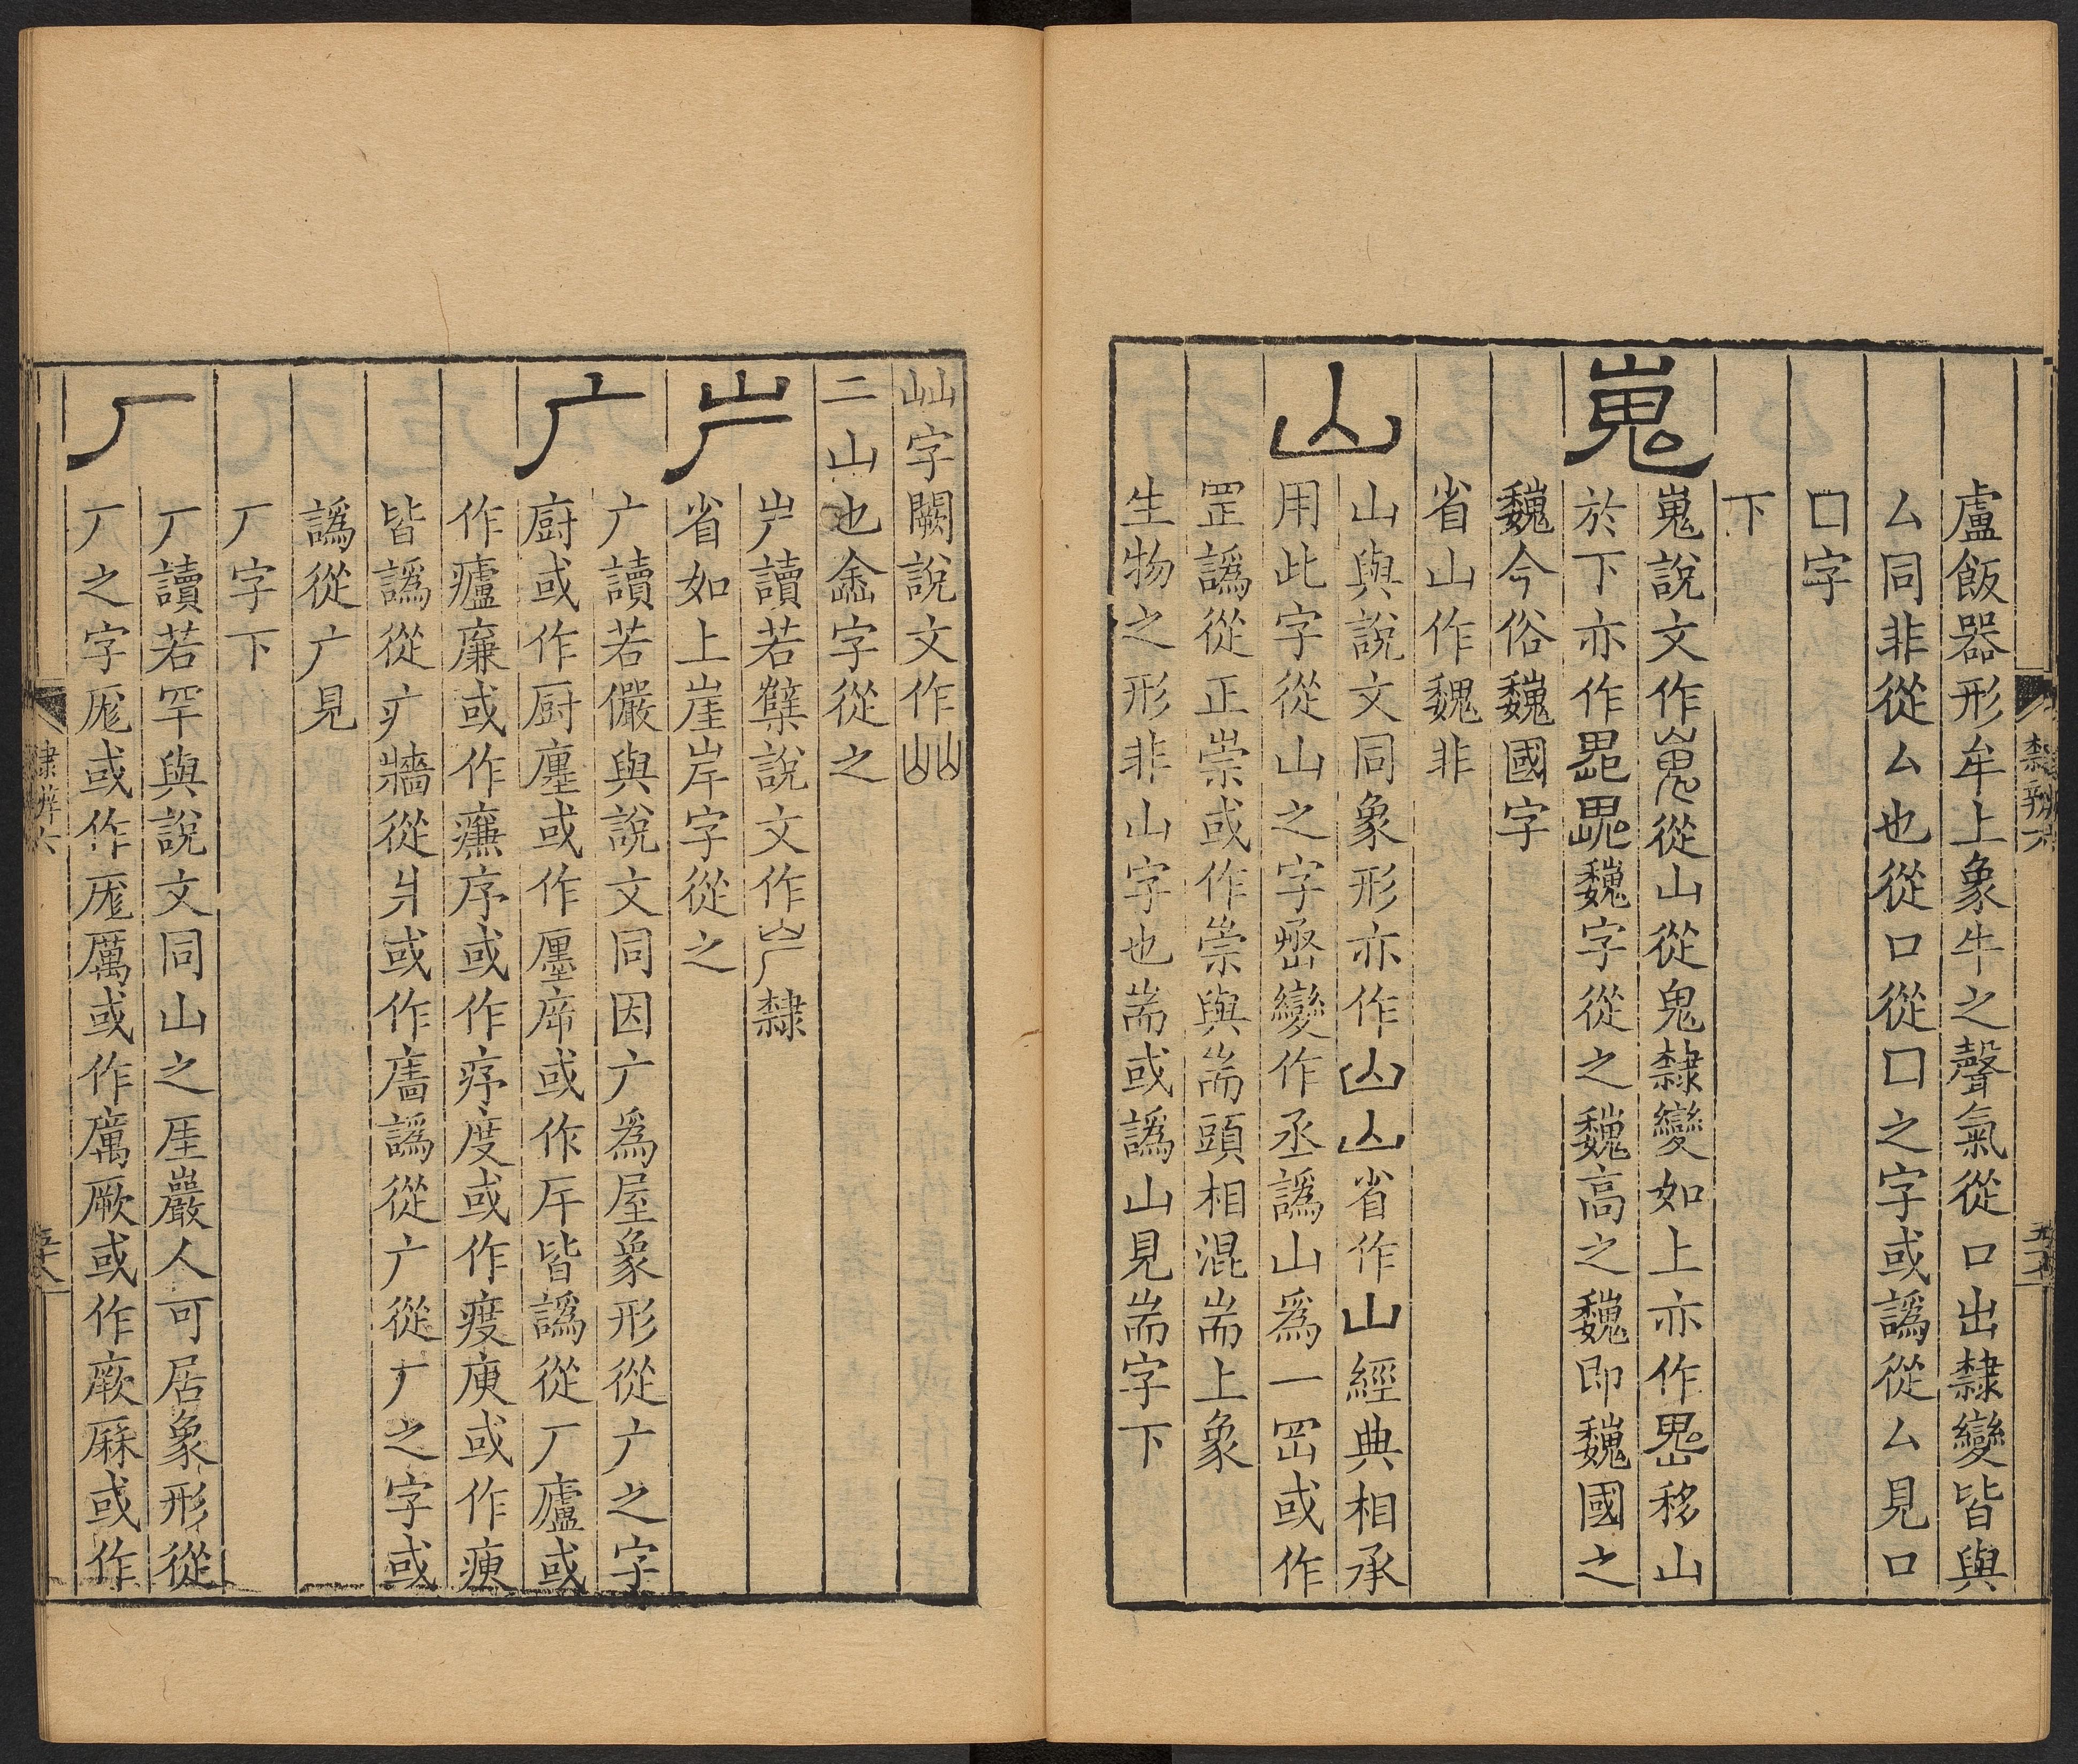 盧飯器形牟上象牛之聲氣從口出隸變皆與
厶同非從厶也從口從囗之字或譌從厶見口
囗字
下
嵬
嵬說文作嵬從山從鬼隸變如上亦作移山
於下亦作魏字從之魏高之魏即魏國之
魏今俗魏國字
省山作魏非
山
山與說文同象形亦作山山省作山經典相承
用此字從山之字變作丞譌山爲一或作
罡譌從正崇或作與耑頭相混耑上象
生物之形非山字也耑或譌山見耑字下
屾字闕說文作屾
二山也嵞字從之
屵
屵讀若櫱說文作屵隸
省如上崖岸字從之
广
广讀若儼與說文同因广爲屋象形從广之字
廚或作厨廛或作厘庌或作厊皆譌從厂廬或
作廉或作序或作度或作庾或作
皆譌從疒牆從爿或作廧譌從广從疒之字或
譌從广見
疒字下
厂
厂讀若罕與說文同山之厓巖人可居象形從
厂之字厖或作庬厲或作厥或作厤或作
隸辨六
五十七
隸辨六
五十八